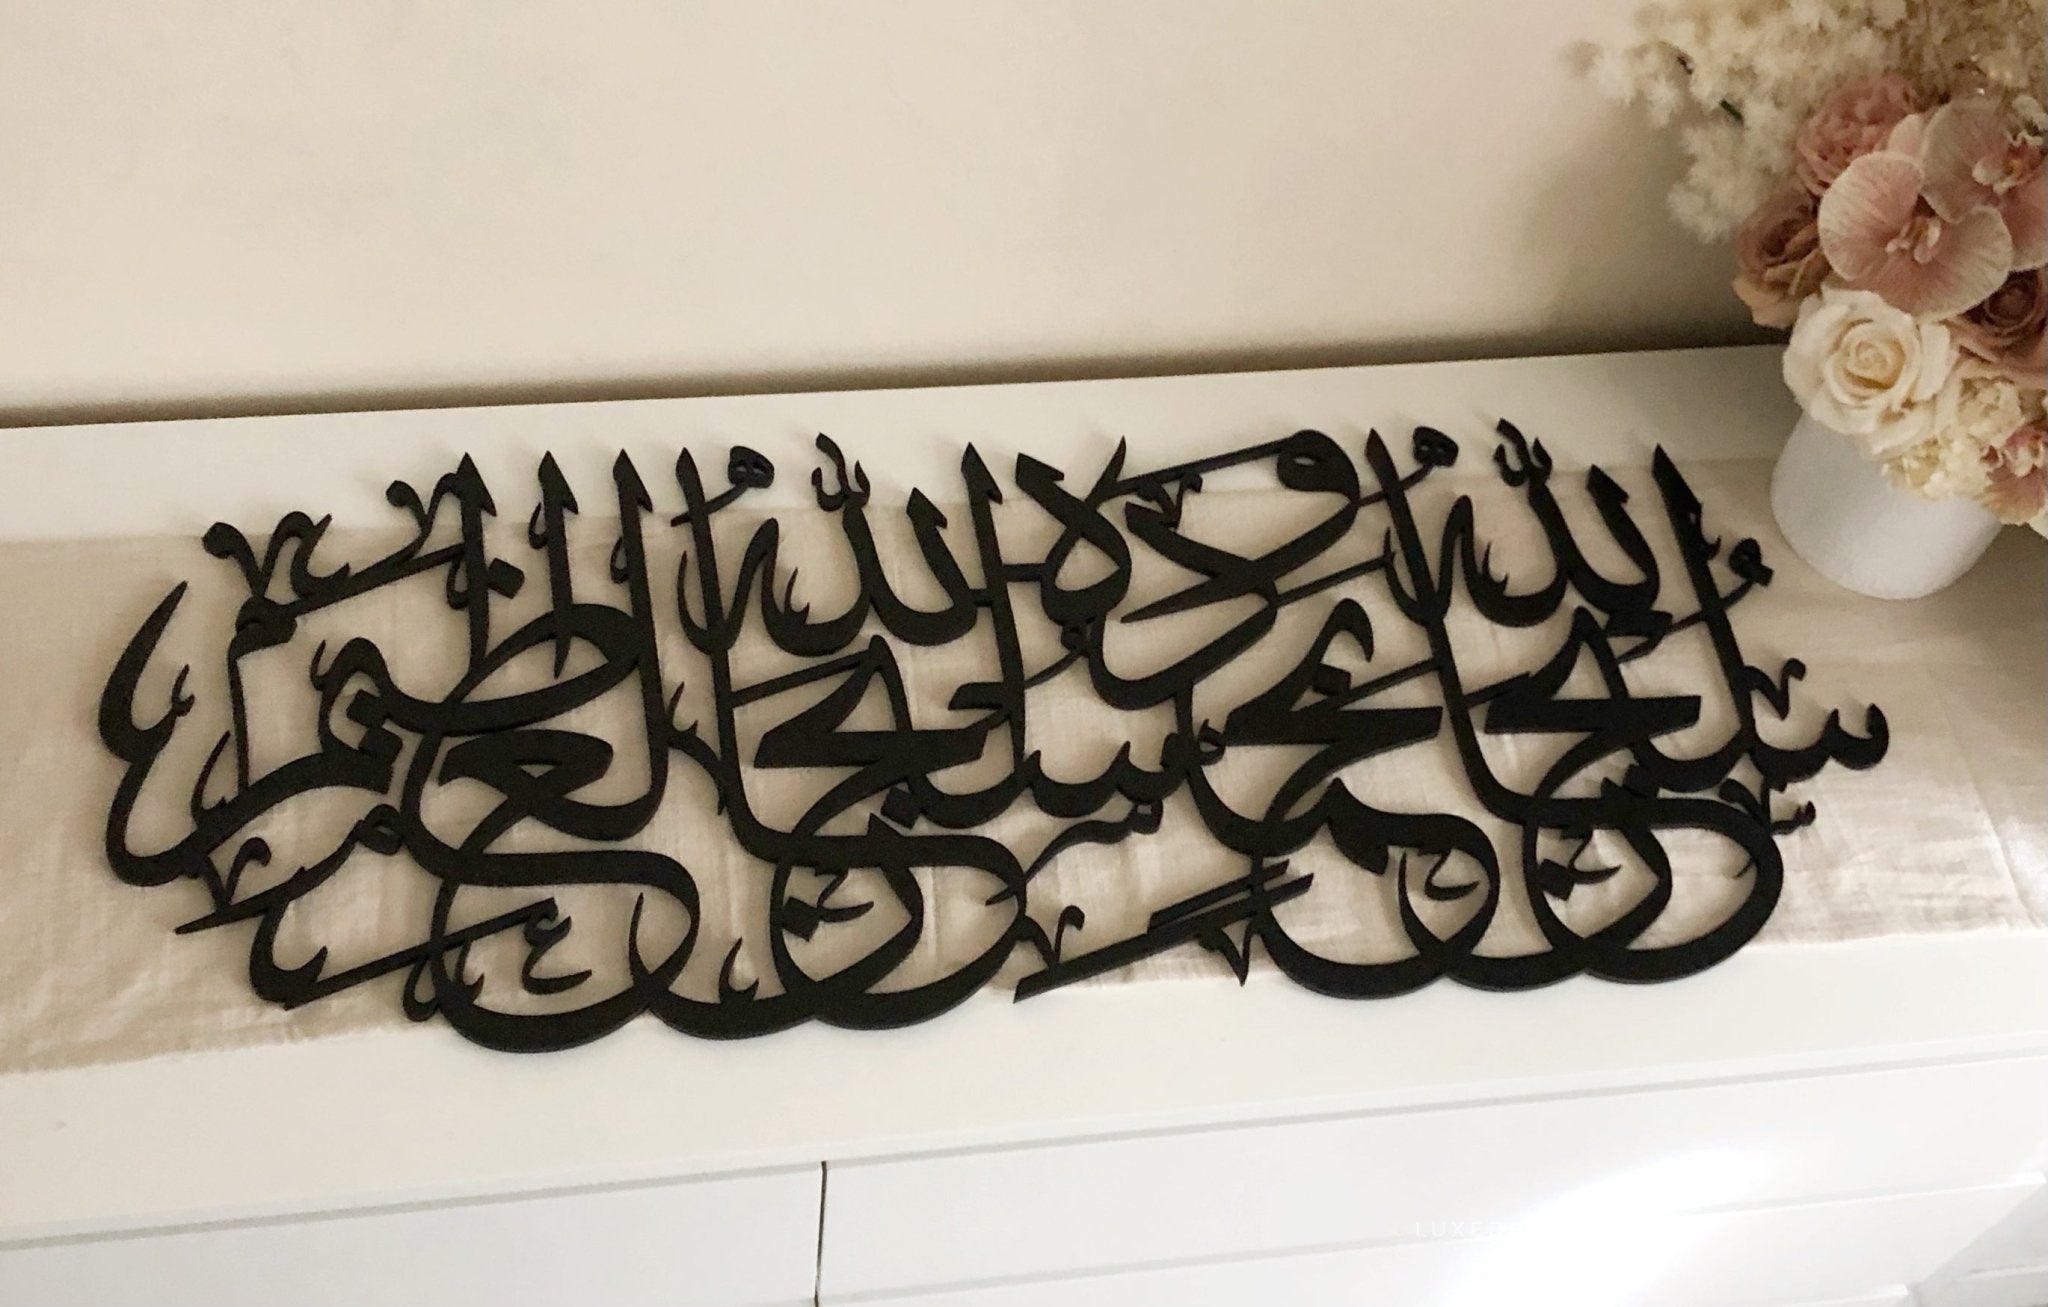 سُبْحَانَ اللهِ وَبِحَمْدِهِ سُبْحَانَ اللهِ الْعَظِيمِ
LUXED